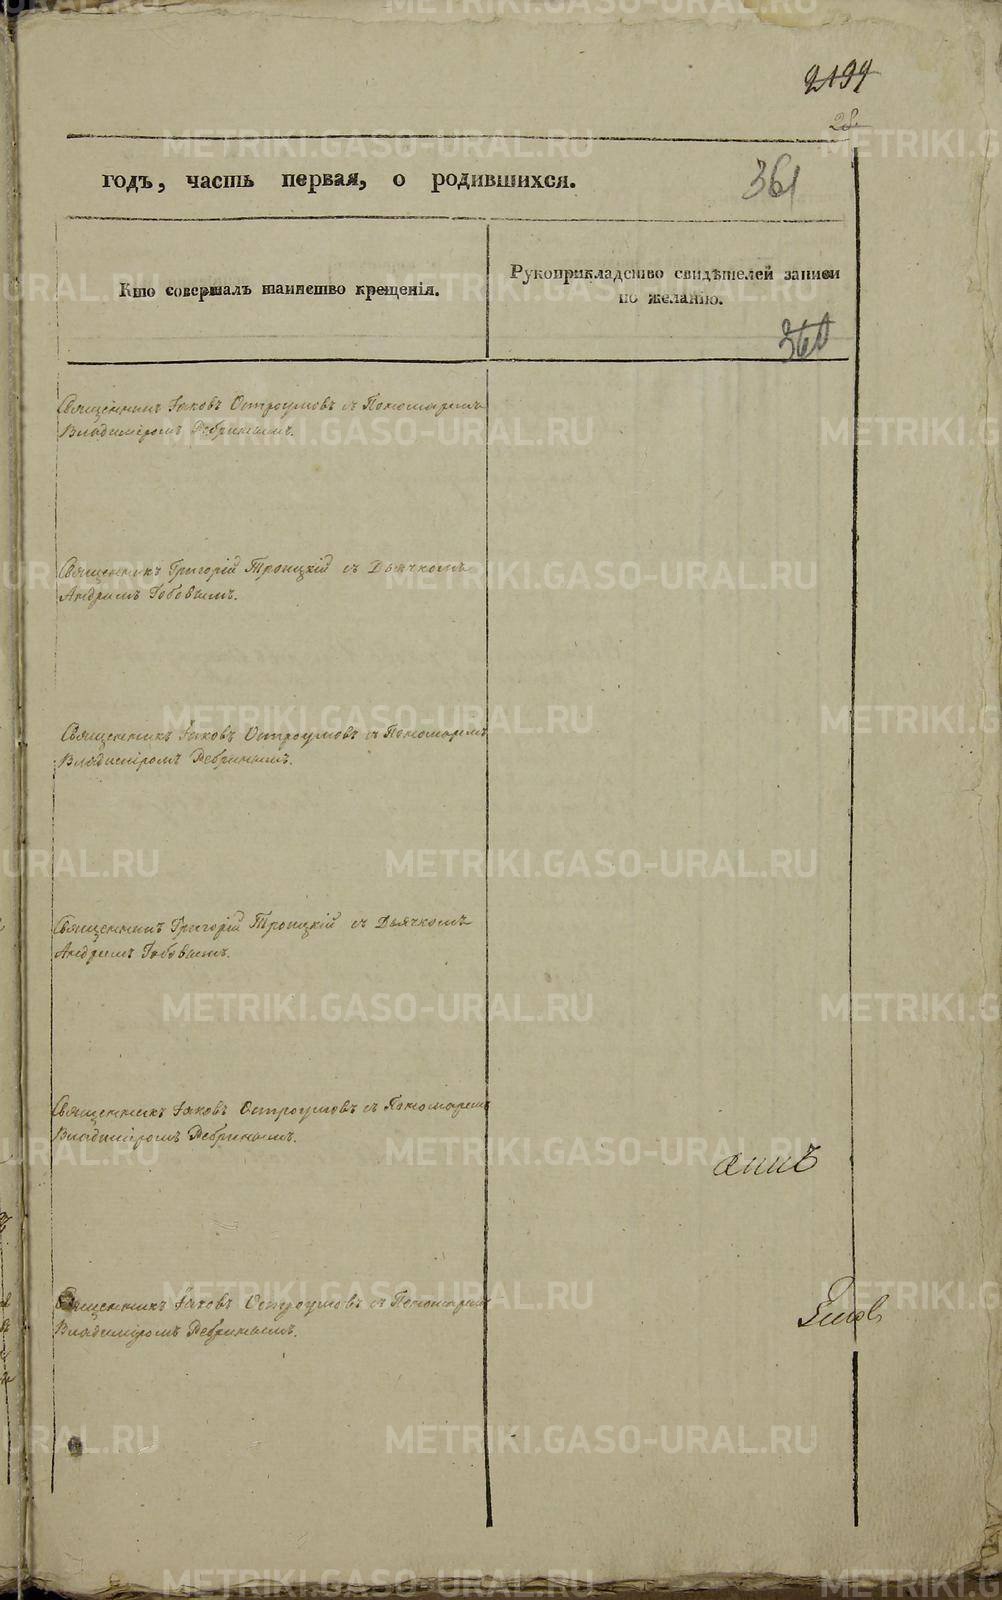 2194
28
361
годъ, часть первая, о родившихся.
Кто совершалъ таинство крещенія.
Рукоприкладство свидѣтелей записи
по желанію.
360
Священникъ Іаковъ Остроумовъ съ Пономаремъ
Владиміромъ Ребринымъ.
Священникъ Григорій Троицкій съ Дьячкомъ
Андреемъ Бобовымъ.
Священникъ Іаковъ Остроумовъ съ Пономаремъ
Владиміромъ Ребринымъ.
Священникъ Григорій Троицкій съ Дьячкомъ
Андреемъ Бобовымъ.
Священникъ Іаковъ Остроумовъ съ Пономаремъ
Владиміромъ Ребринымъ.
Священникъ Іаковъ Остроумовъ съ Пономаремъ
Владиміромъ Ребринымъ.
METRIKI.GASO-URAL.RU